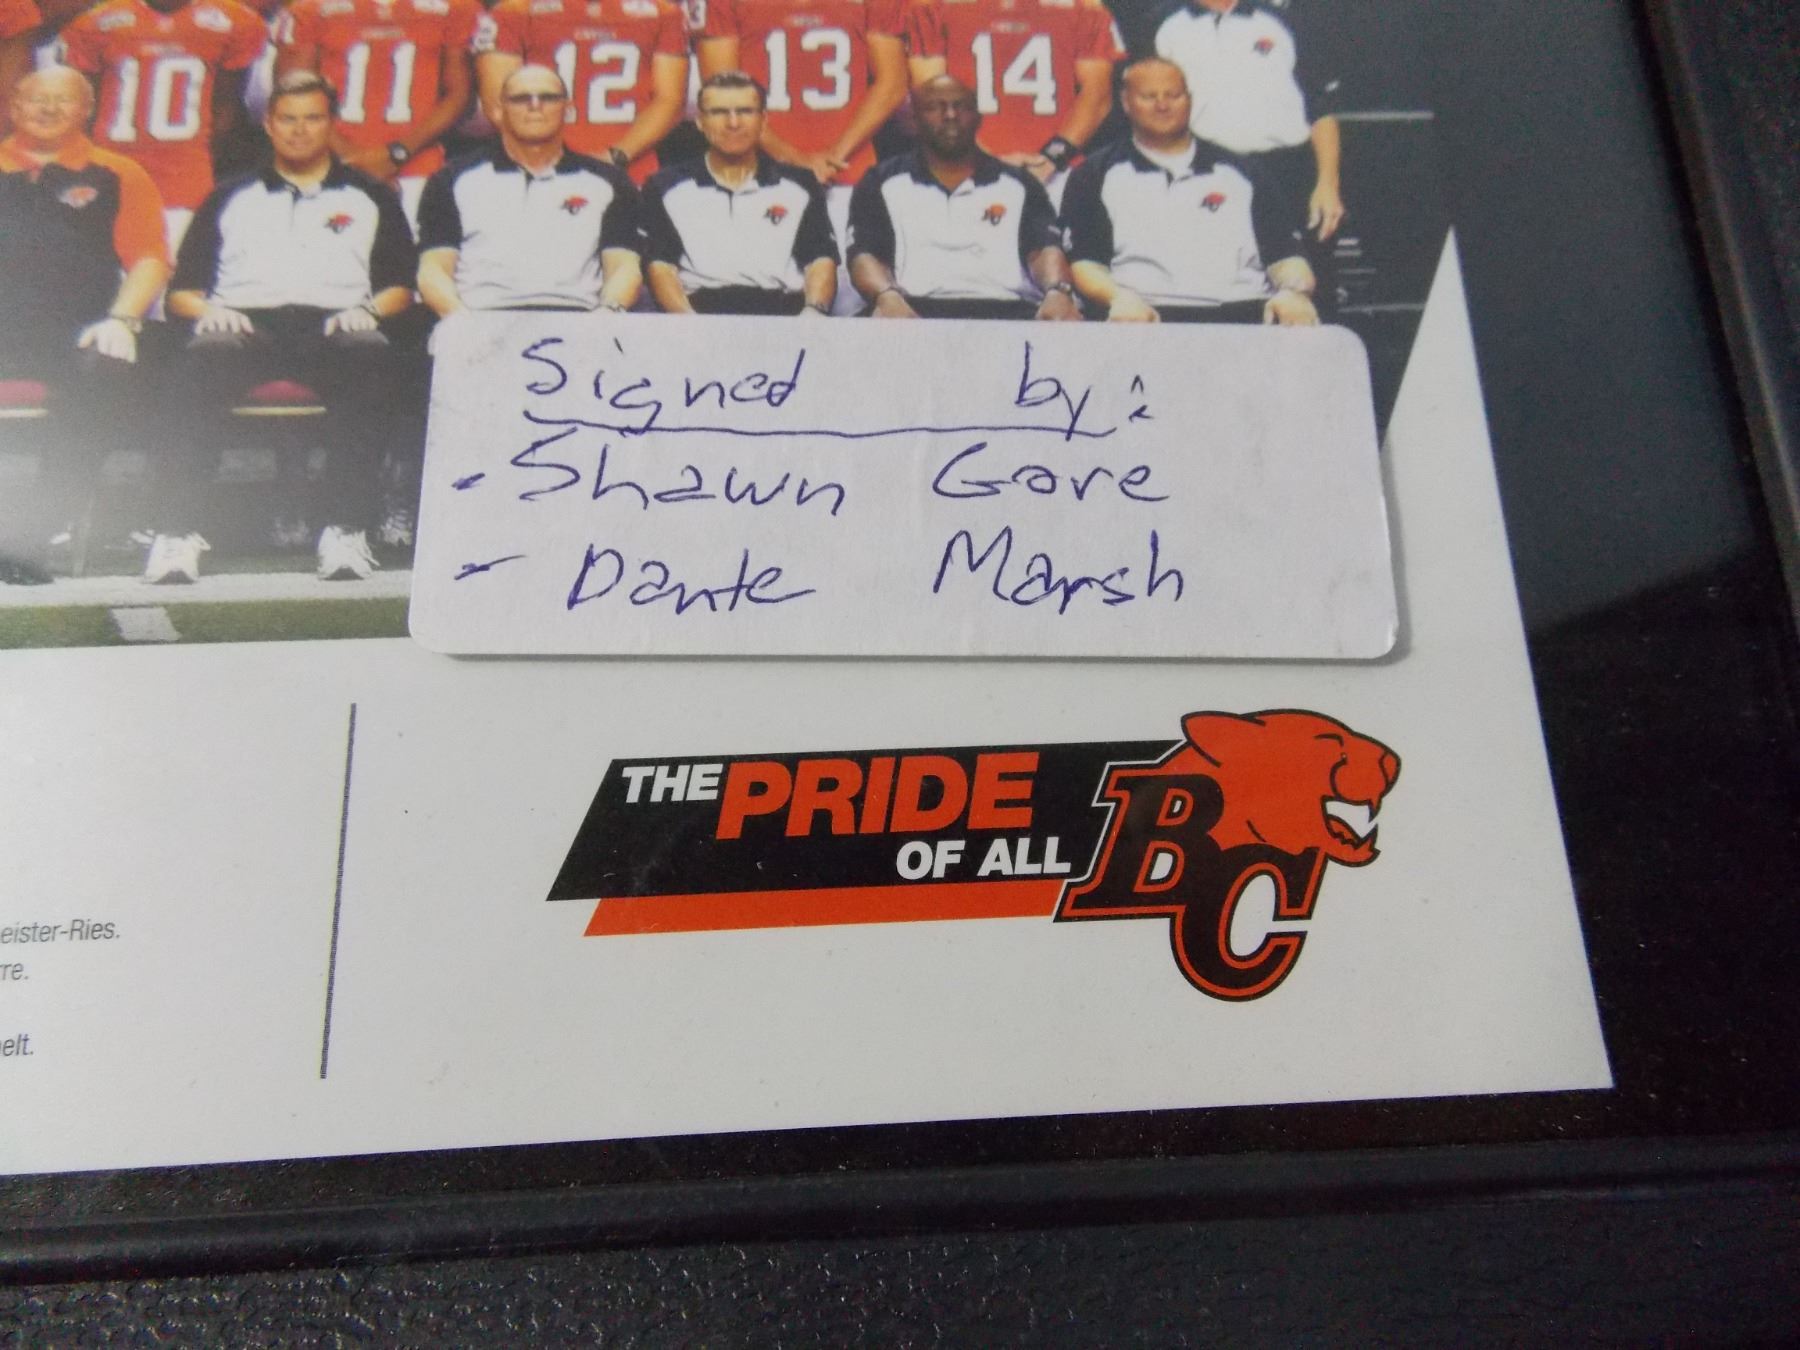 10 11 12 13 14
Signed by:
- Shawn Gore
- Dante Marsh
THE PRIDE
OF ALL
BC
eister-Ries.
re.
elt.